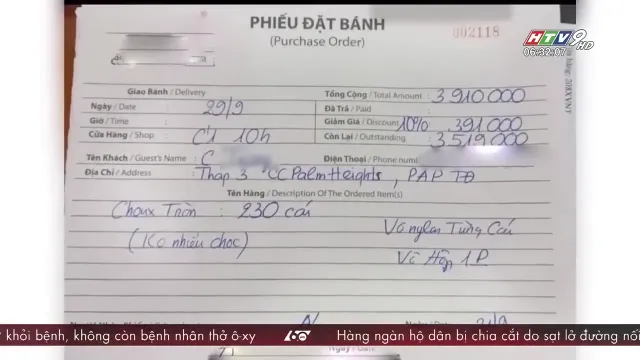 PHIẾU ĐẶT BÁNH
(Purchase Order)
002118
HTV9 HD
06:32:07
Giao Bánh / Delivery
Tổng Cộng / Total Amount : 3 910 000
Ngày / Date : 29/9
Đã Trả / Paid :
Giờ / Time :
Giảm Giá / Discount 10% 391 000
Cửa Hàng / Shop : C1 10h
Còn Lại / Outstanding : 3 519 000
Tên Khách / Guest's Name : C
Điện Thoại / Phone num
Địa Chỉ / Address : Tháp 3 CC Palm Heights, PAP TĐ
Tên Hàng / Description Of The Ordered Item(s)
Choux Tròn : 230 cái
(Ko nhiều choc)
Vô nylon Từng Cái
Vô Hộp 1P
khỏi bệnh, không còn bệnh nhân thở ô-xy
60
Hàng ngàn hộ dân bị chia cắt do sạt lở đường nối